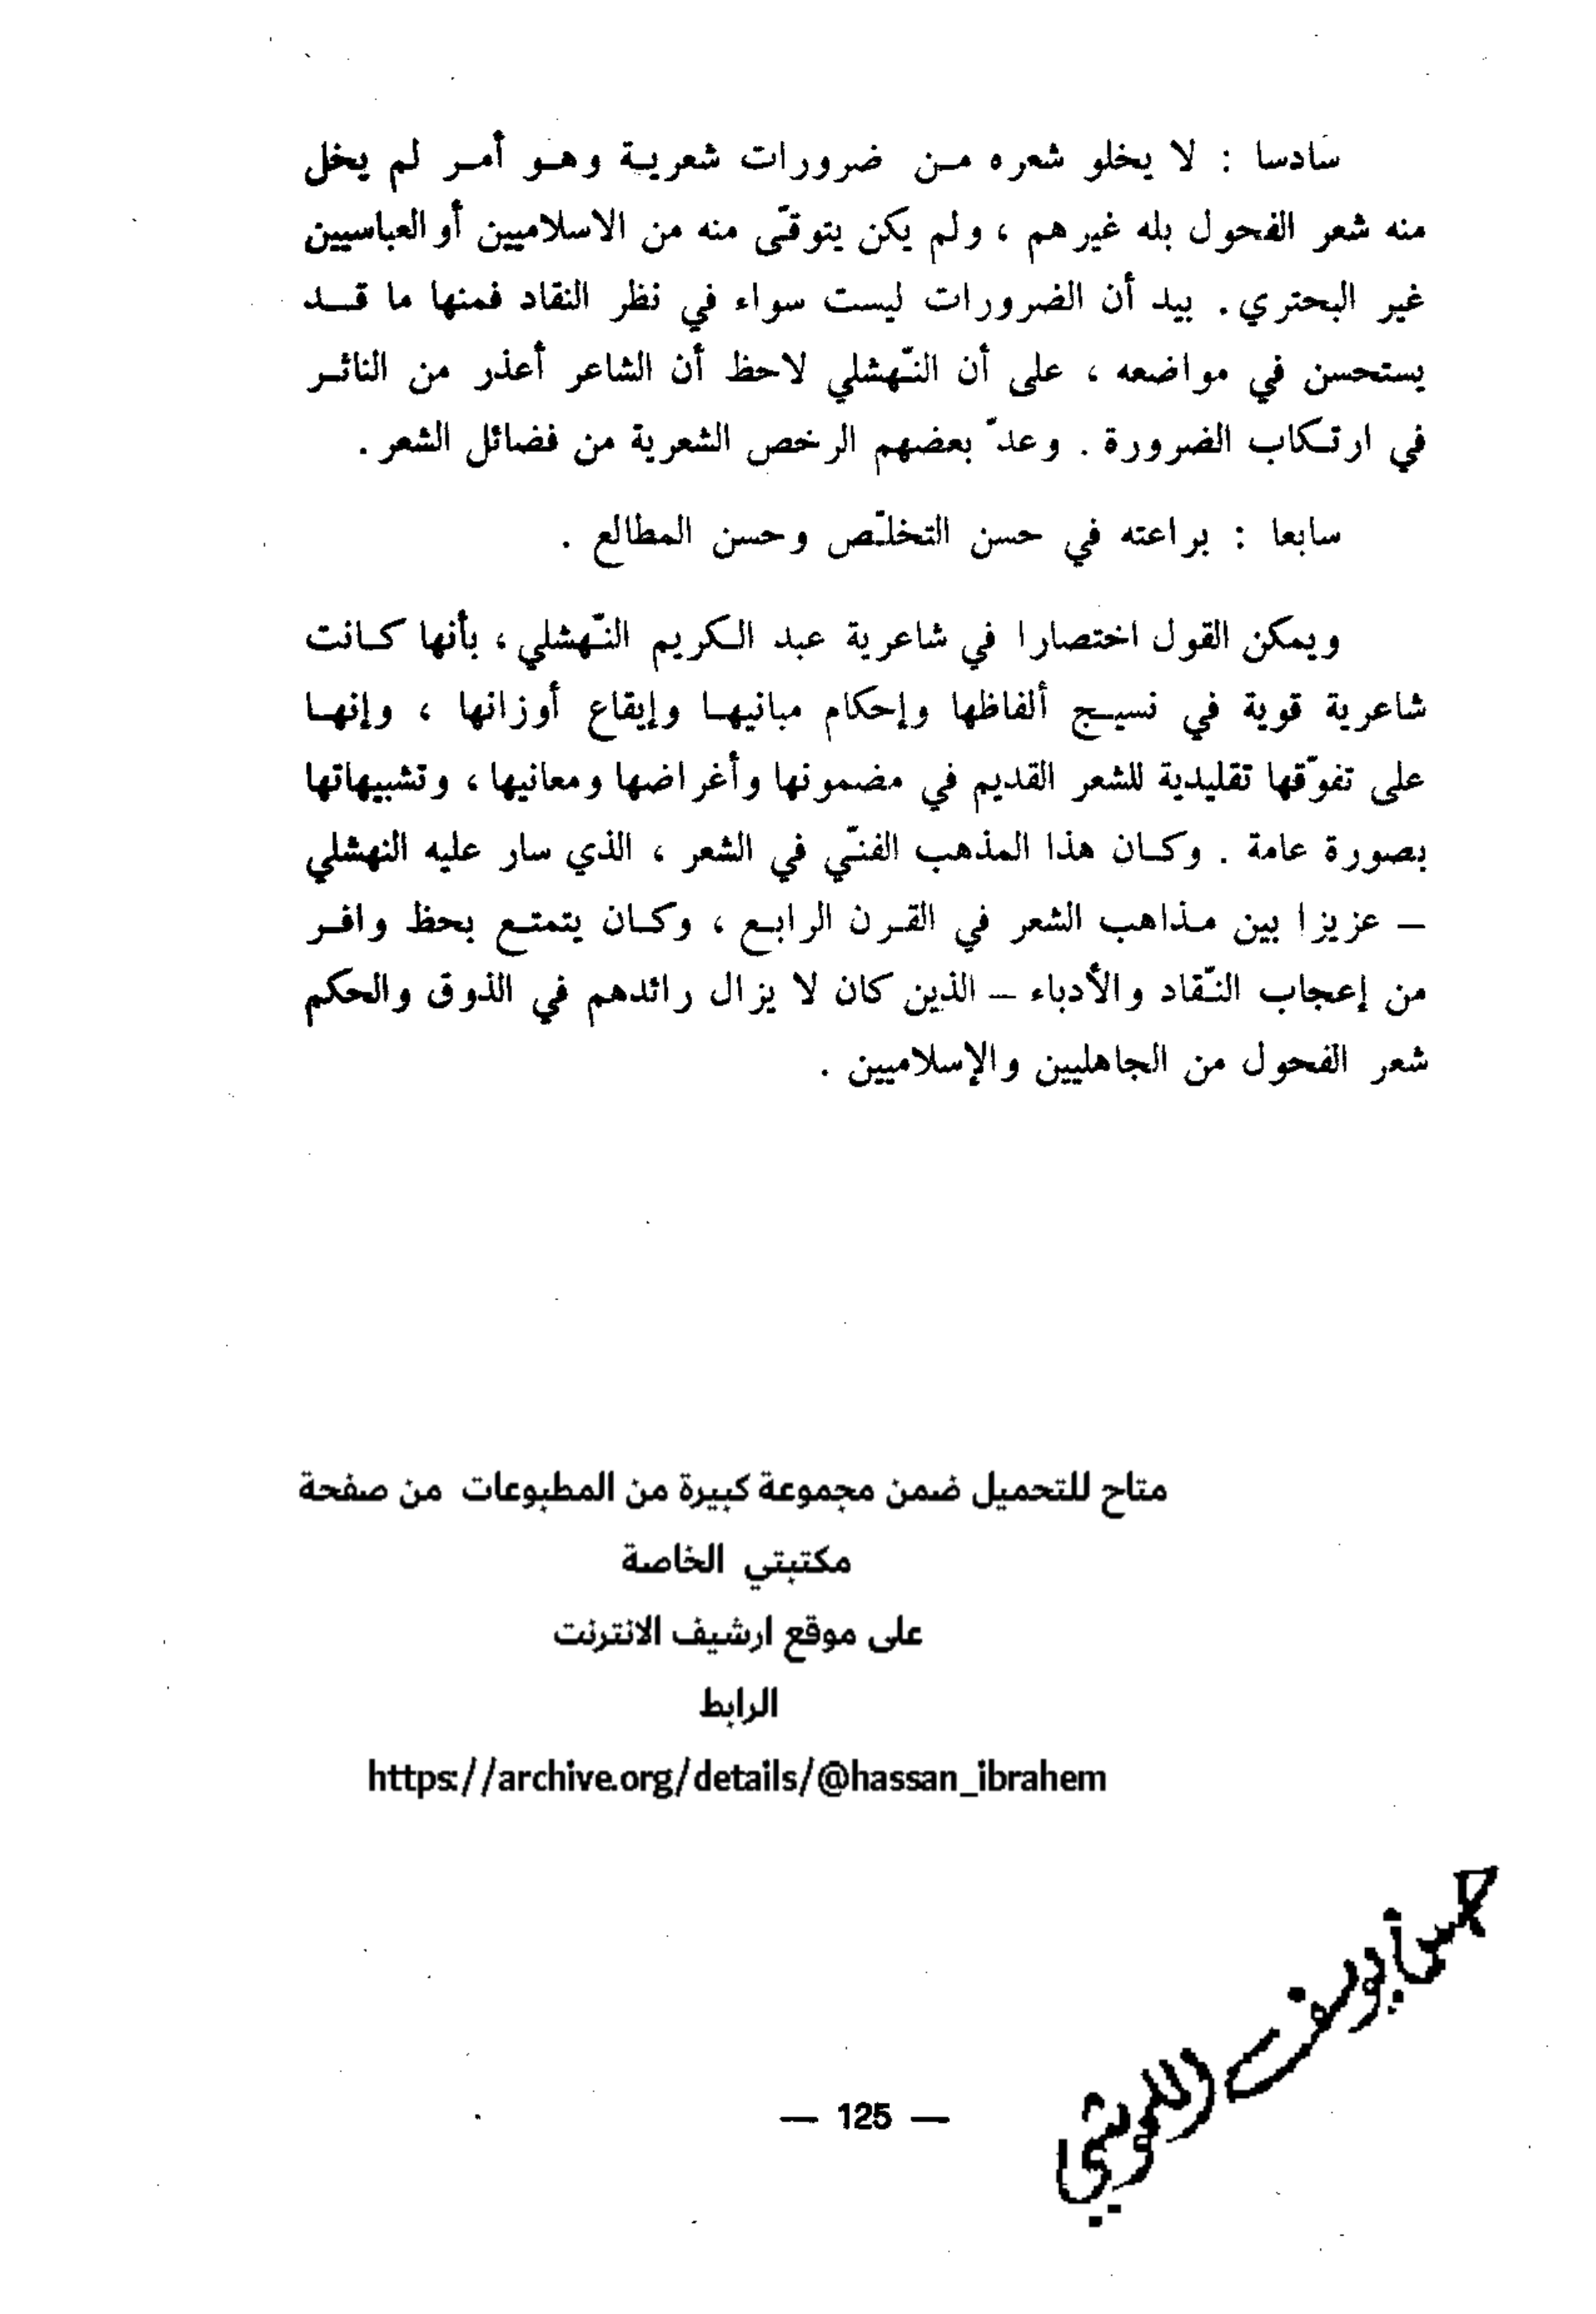 سادسا : لا يخلو شعره من ضرورات شعرية وهو أمر لم يخل
منه شعر الفحول بله غيرهم ، ولم يكن يتوقّى منه من الاسلاميين أو العباسيين
غير البحتري . بيد أن الضرورات ليست سواء في نظر النقاد فمنها ما قد
يستحسن في مواضعه ، على أن النّهشلي لاحظ أن الشاعر أعذر من الناثر
في ارتكاب الضرورة . وعدّ بعضهم الرخص الشعرية من فضائل الشعر .
سابعا : براعته في حسن التخلّص وحسن المطالع .
ويمكن القول اختصارا في شاعرية عبد الكريم النّهشلي ، بأنها كانت
شاعرية قوية في نسيج ألفاظها وإحكام مبانيها وإيقاع أوزانها ، وإنها
على تفوّقها تقليدية للشعر القديم في مضمونها وأغراضها ومعانيها ، وتشبيهاتها
بصورة عامة . وكان هذا المذهب الفنّي في الشعر ، الذي سار عليه النهشلي
— عزيزا بين مذاهب الشعر في القرن الرابع ، وكان يتمتع بحظ وافر
من إعجاب النّقاد والأدباء — الذين كان لا يزال رائدهم في الذوق والحكم
شعر الفحول من الجاهليين والإسلاميين .
متاح للتحميل ضمن مجموعة كبيرة من المطبوعات من صفحة
مكتبتي الخاصة
على موقع ارشيف الانترنت
الرابط
https://archive.org/details/@hassan_ibrahem
— 125 —